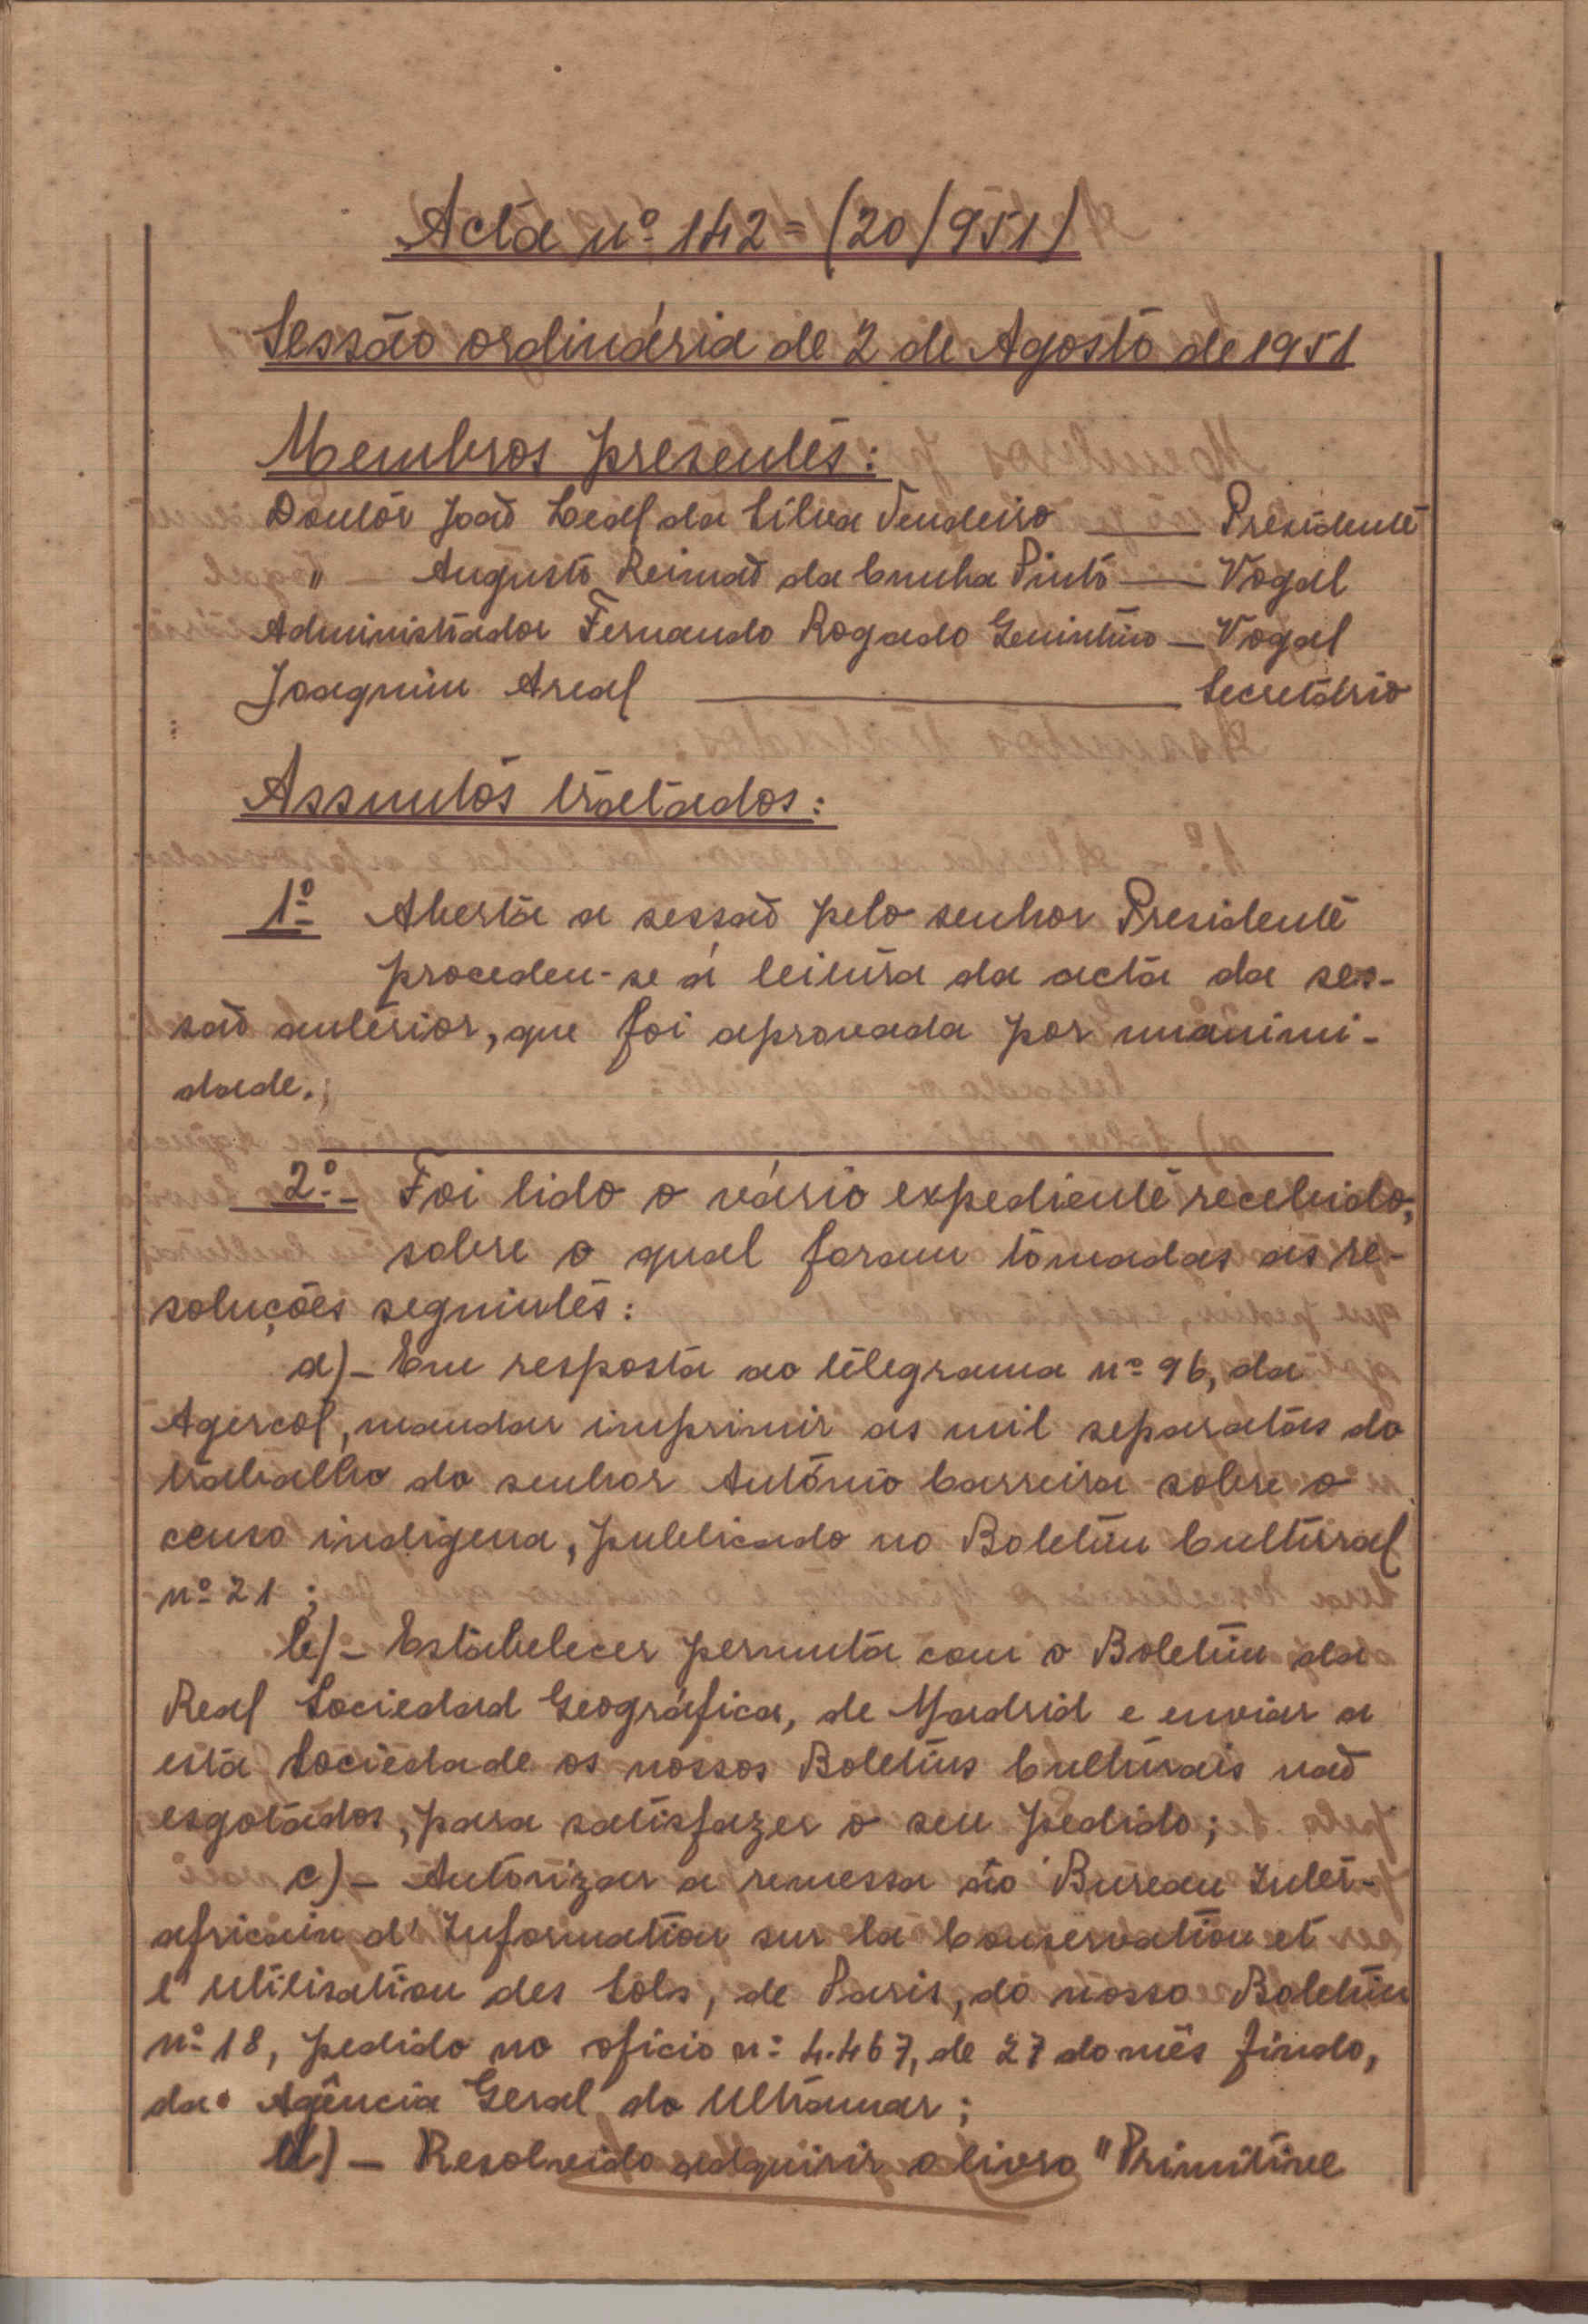 Acta nº 142 = (20/951)
Sessão ordinária de 2 de Agosto de 1951
Membros presentes:
Doutor João Leal da Silva Tendeiro — Presidente
" Augusto Reimão da Cunha Pinto — Vogal
Administrador Fernando Rogado Quintino — Vogal
Joaquim Areal — Secretário
Assuntos tratados:
1º Aberta a sessão pelo senhor Presidente
procedeu-se á leitura da acta da ses-
são anterior, que foi aprovada por unanimi-
dade.;
2º- Foi lido o vário expediente recebido,
sobre o qual foram tomadas as re-
soluções seguintes:
a)- Em resposta ao telegrama nº 96, da
Agercol, mandar imprimir as mil separatas do
trabalho do senhor António Carreira sobre o
censo indígena, publicado no Boletim Cultural
nº 21;
b)- Estabelecer permuta com o Boletim da
Real Sociedad Geográfica, de Madrid e enviar a
esta Sociedade os nossos Boletins Culturais não
esgotados, para satisfazer o seu pedido;
c)- Autorizar a remessa ao Bureau Inter-
africain d'Information sur la Conservation et
l'Utilisation des Sols, de Paris, do nosso Boletim
nº 18, pedido no ofício nº 4.467, de 27 do mês findo,
da Agência Geral do Ultramar;
d)- Resolvido adquirir o livro "Primitive